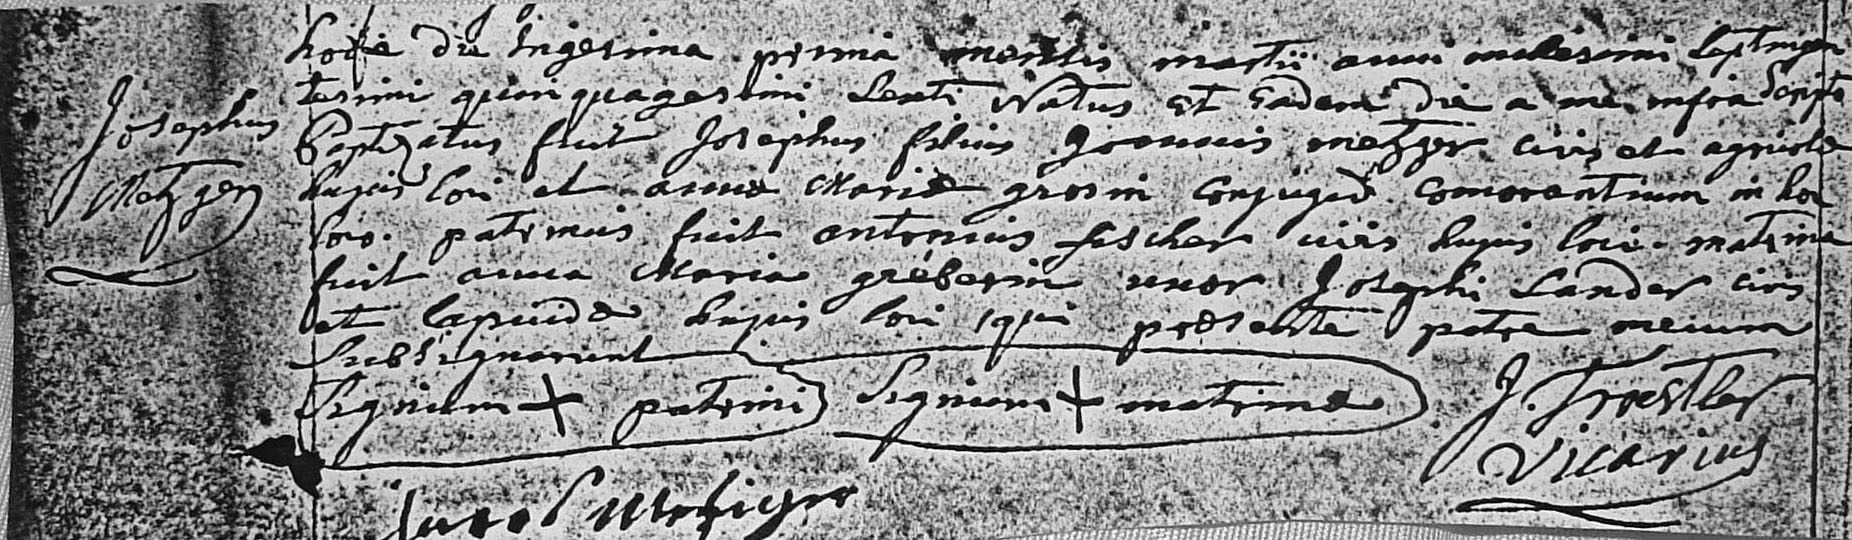 hodie die vigesima prima mensis martii anni millesimi septingen
tesimi quinquagesimi sexti Natus et eadem die a me infra scripto
Baptizatus fuit Josephus filius Joannis Metzger civis et agricolæ
Josephus
Metzger
hujus loci et annæ Mariæ grosin conjugum comorantium in hoc
loco. patrinus fuit antonius fischer civis hujus loci. matrina
fuit anna Maria gréberin uxor Josephi Lander civis
et hujus loci qui præsente patre mecum
subsignarunt
Signum + patrini Signum + matrinæ
J. Troestler
Vicarius